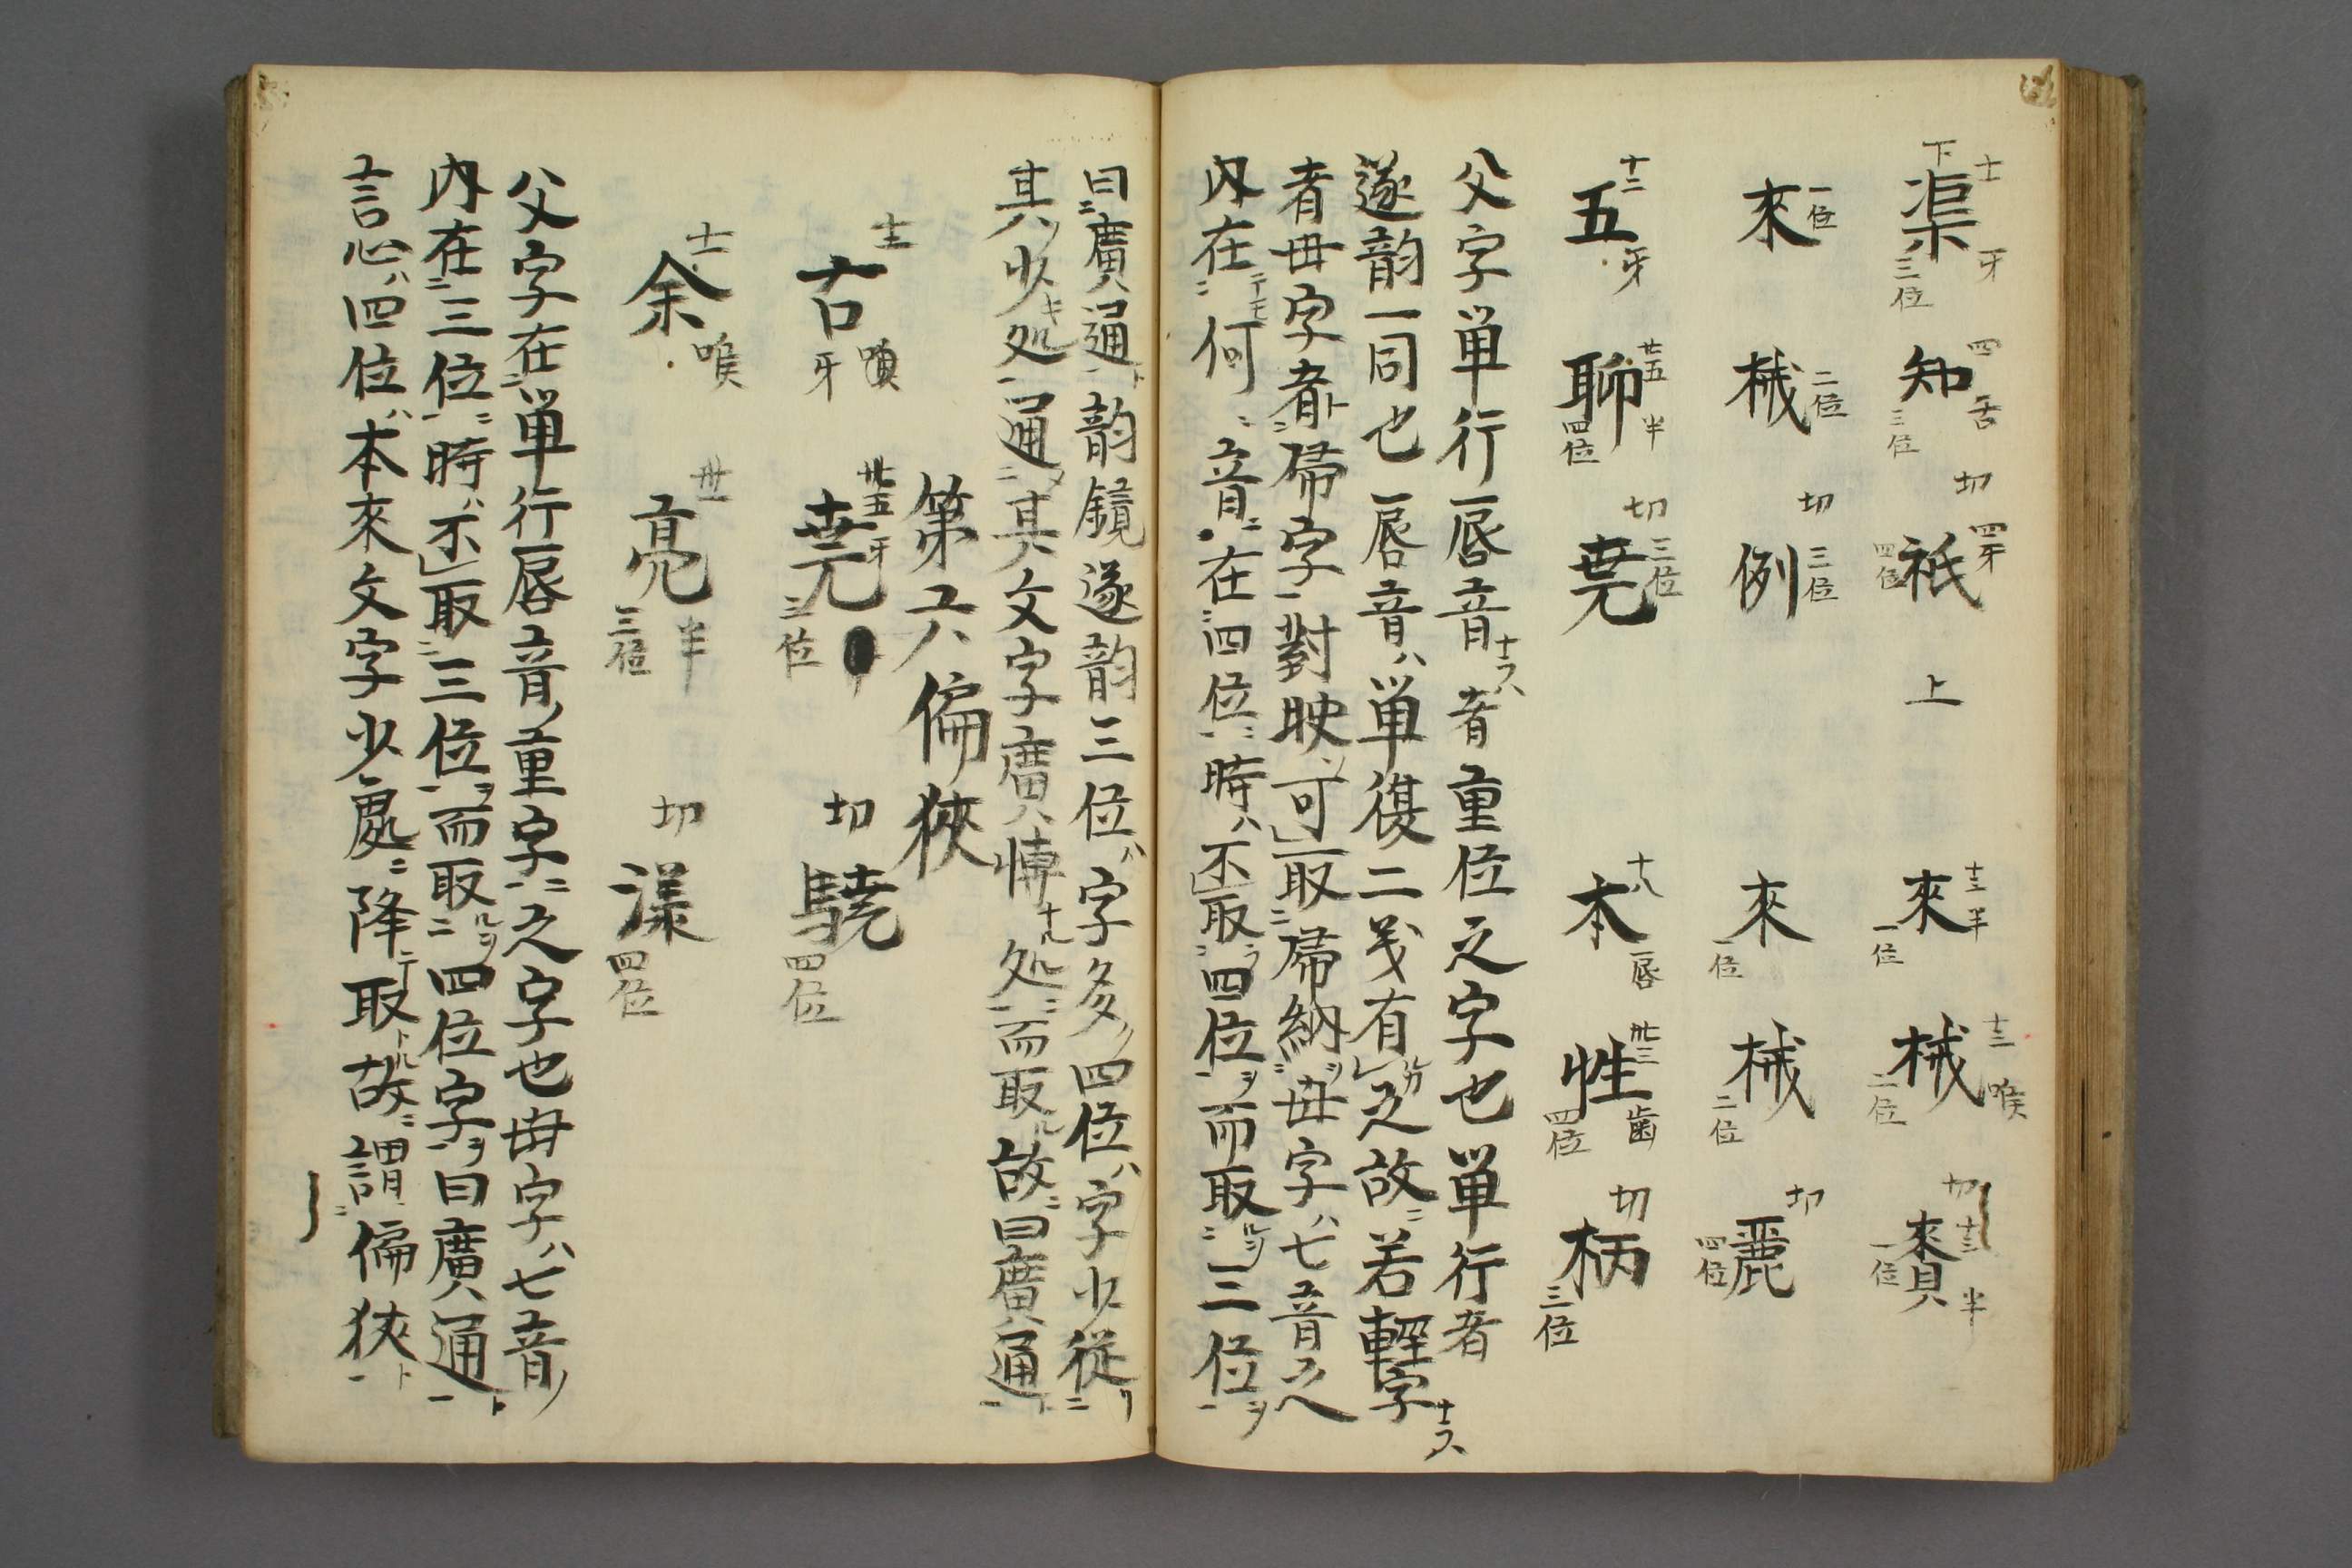 下渠三位 十一牙 知三位 四舌 切 祇四位 四牙 上 來一位 十三半 械二位 十三喉 切 賚一位 十三半
來一位 械二位 切 例三位 來一位 械二位 切 麗四位
五 十二牙 聊四位 廿五半 切 堯三位 本 十八唇 性四位 卅三歯 切 柄三位
父字単行唇音ナラハ者重位之字也単行者
遂韵一同也唇音ハ単復二義有レ之故ニ若軽字ナラハ
者母字者ト帰字一對映ソ可取ニ帰納ヲ母字ハ七音之
内在ニ何ノ音ニモ在四位ニ時ハ不取ラ四位ヲ而取ルヲ三位ヲ
曰廣通ト韵鏡遂韵三位ハ字多ノ四位ハ字少従リ
其ノ少キ処通ソ其文字廣ハ博ナル処ニ而取ル故ニ曰廣通ト
第六偏狹
古牙 堯三位 廿五牙 切 驍四位
余 喉 亮三位 卅一半 切 漾四位
父字在単行唇音ノ重字ニ之字也毋字ハ七音ノ
内在三位ニ時ハ不取三位ヲ而取ルヲ四位字ヲ曰廣通ト
言心ハ四位ハ本來文字少處ニ降テ取トル故ニ謂偏狹ト